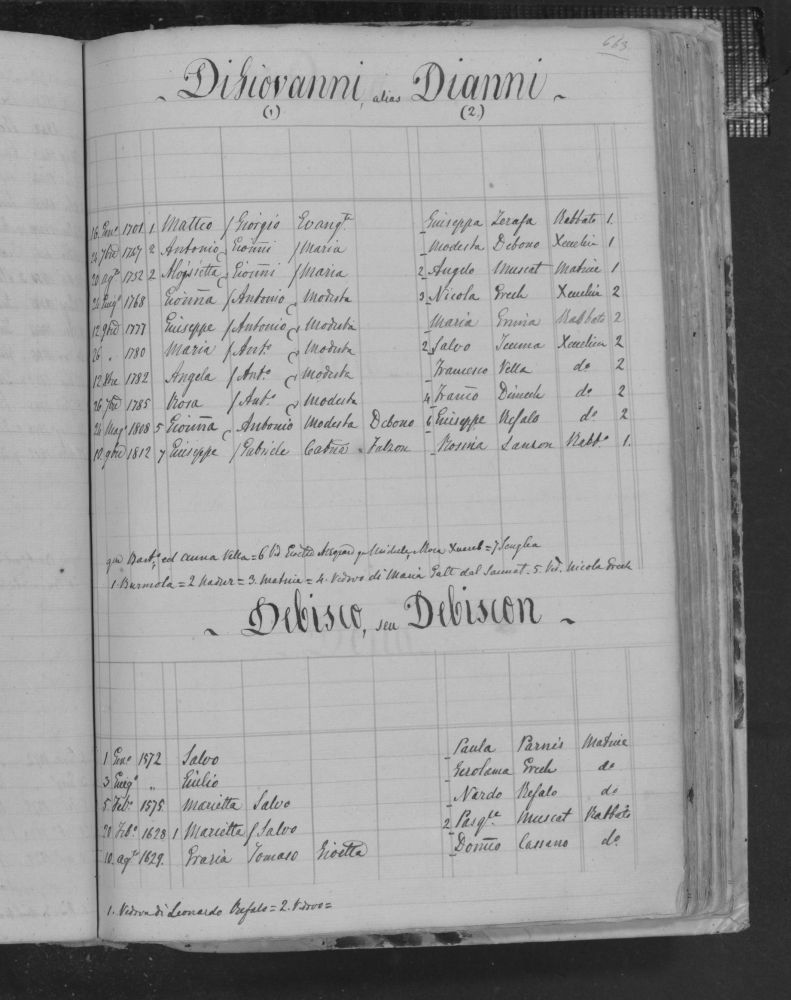 663
DiGiovanni, alias Dianni
(1) (2.)
16. Genº 1701 1 Matteo / Giorgio Evangta Giuseppa Zerafa Rabbato 1.
1767 2 Antonio Gionni / Maria Modesta Debono Xeuchia 1
20 agto 1752 2 Gionni / Maria 2 Angelo Muscat Matrice 1
1768 Gionna / Antonio Modesta 3 Nicola Grech Xeuchia 2
12 9bre 1777 Giuseppe / Antonio Modesta Maria Rabbato 2
26 " 1780 Maria / Anto Modesta 2 Salvo Xeuchia 2
12 Xbre 1782 Angela / Anto Modesta Francesco Vella do 2
26 7bre 1785 Rosa / Anto Modesta 4 Franco Dimech do 2
24 Mago 1808 5 Gionna Antonio Modesta Debono 6 Giuseppe Refalo do 2
10 9bre 1812 7 Giuseppe / Gabriele Catna Falzon Rosina Rabbo 1.
qm Barto ed Anna Vella = 6 Vid = 7 Senglea
1. Burmola = 2 Nadur = 3. Matrice = 4. Vedovo di Maria Galt dal Sannat. 5. Ved. Nicola Grech
Debisco, seu Debiscon
1 Genº 1572 Salvo Paula Parnis Matrice
3 Giugº " Giulio Gerolama Grech do
5 Febº 1575 Marietta Salvo Nardo Refalo do
20 Febº 1628 1 Marietta / Salvo 2 Pasqle Muscat Rabbato
10. agto 1629. Grazia Tomaso Gioetta Domco Cassano do
1. Vedova di Leonardo Refalo = 2. Vedovo =